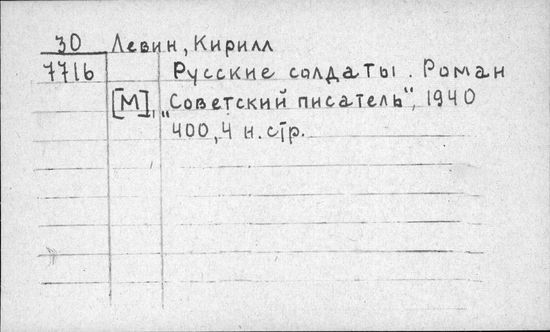 30 Левин, Кирилл
7716 Русские солдаты. Роман
[М], "Советский писатель", 1940
400, 4 н.стр.